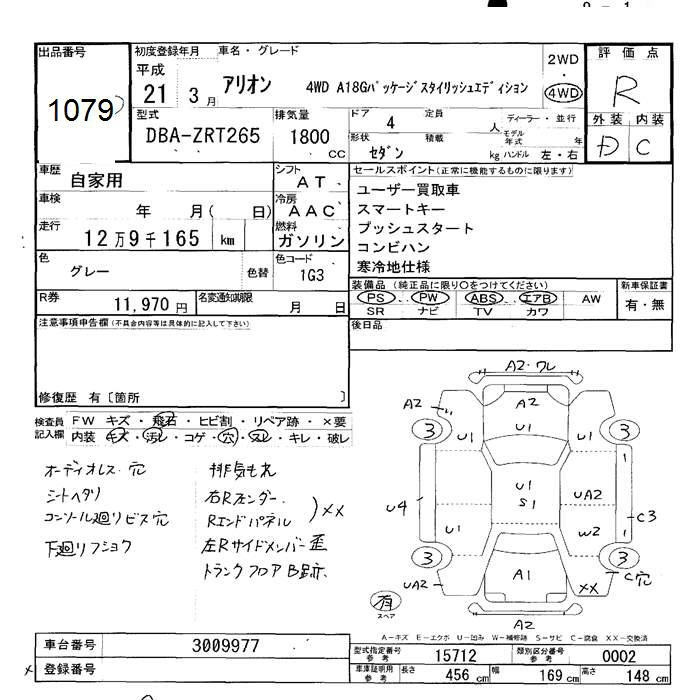 出品番号
1079
初度登録年月 車名・グレード
平成
21 3月 アリオン 4WD A18Gパッケージスタイリッシュエディション
2WD
・
4WD
評価点
R
外装 内装
D C
型式
DBA-ZRT265
排気量
1800
CC
ドア 4 定員 人
形状 セダン 積載 kg
ディーラー・並行
モデル年式 年
ハンドル 左・右
車歴
自家用
シフト
AT
車検
年 月( 日)
冷房
AAC
走行
12万9千165 km
燃料
ガソリン
色
グレー 色替
色コード
1G3
R券
11,970 円
名変通知期限
月 日
セールスポイント(正常に機能するものに限ります)
ユーザー買取車
スマートキー
プッシュスタート
コンビハン
寒冷地仕様
装備品(純正品に限り○をつけてください)
PS PW ABS エアB AW
SR ナビ TV カワ
新車保証書
有・無
後日品
注意事項申告欄(不具合内容等は具体的に記入して下さい)
修復歴 有〔箇所 〕
検査員記入欄
FW キズ・飛石・ヒビ割・リペア跡・×要
内装 キズ・汚レ・コゲ・穴・スレ・キレ・破レ
オーディオレス.穴
シートヘタリ
コンソール廻リビス穴
下廻リフショク
排気もれ
右Rフェンダー.
Rエンドパネル
)××
左Rサイドメンバー歪
トランクフロアB跡.
A2・ワレ
A2
A2
3
U1
U1
3
1
U1
S1
U4
UA2
C3
U1
W2
1
3
3
UA2
A1
××
C穴
有
スペア
A2
A-キズ E-エクボ U-凹み W-補修跡 S-サビ C-腐食 XX-交換済
車台番号
3009977
登録番号
型式指定番号
参考
15712
類別区分番号
参考
0002
車庫証明用
参考
長さ 456 cm 幅 169 cm 高さ 148 cm